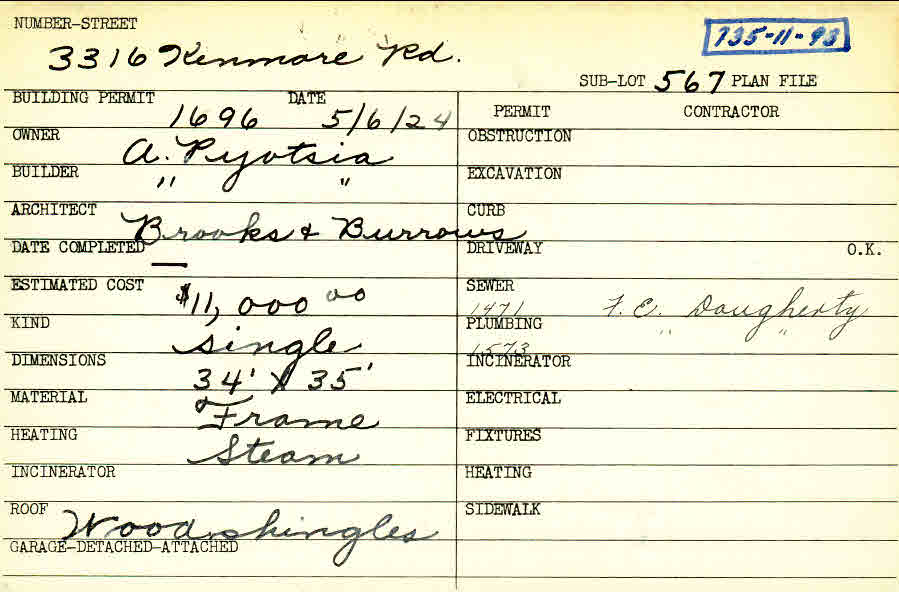 NUMBER-STREET
3316 Kenmore Rd.
735-11-93
SUB-LOT 567 PLAN FILE
BUILDING PERMIT DATE
1696 5/6/24
PERMIT CONTRACTOR
OWNER
A. Pyotsia
OBSTRUCTION
BUILDER
" "
EXCAVATION
ARCHITECT
Brooks & Burrows
CURB
DATE COMPLETED
—
DRIVEWAY O.K.
ESTIMATED COST
$11,000 00
SEWER
1471 F. E. Dougherty
KIND
single
PLUMBING
1573 " "
DIMENSIONS
34' X 35'
INCINERATOR
MATERIAL
Frame
ELECTRICAL
HEATING
Steam
FIXTURES
INCINERATOR
HEATING
ROOF
Wood shingles
SIDEWALK
GARAGE-DETACHED-ATTACHED